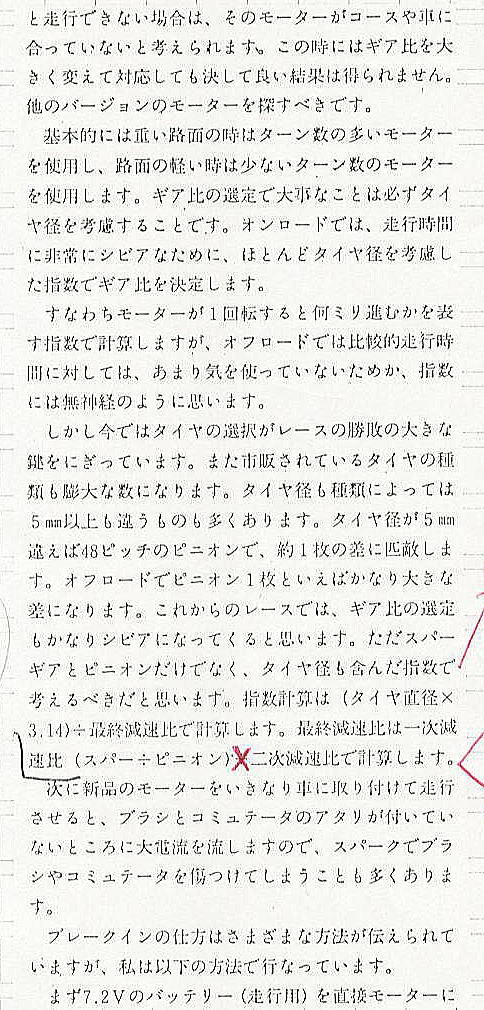 と走行できない場合は、そのモーターがコースや車に
合っていないと考えられます。この時にはギア比を大
きく変えて対応しても決して良い結果は得られません。
他のバージョンのモーターを探すべきです。
基本的には重い路面の時はターン数の多いモーター
を使用し、路面の軽い時は少ないターン数のモーター
を使用します。ギア比の選定で大事なことは必ずタイ
ヤ径を考慮することです。オンロードでは、走行時間
に非常にシビアなために、ほとんどタイヤ径を考慮し
た指数でギア比を決定します。
すなわちモーターが1回転すると何ミリ進むかを表
す指数で計算しますが、オフロードでは比較的走行時
間に対しては、あまり気を使っていないためか、指数
には無神経のように思います。
しかし今ではタイヤの選択がレースの勝敗の大きな
鍵をにぎっています。また市販されているタイヤの種
類も膨大な数になります。タイヤ径も種類によっては
5㎜以上も違うものも多くあります。タイヤ径が5㎜
違えば48ピッチのピニオンで、約1枚の差に匹敵しま
す。オフロードでピニオン1枚といえばかなり大きな
差になります。これからのレースでは、ギア比の選定
もかなりシビアになってくると思います。ただスパー
ギアとピニオンだけでなく、タイヤ径も含んだ指数で
考えるべきだと思います。指数計算は(タイヤ直径×
3.14)÷最終減速比で計算します。最終減速比は一次減
速比(スパー÷ピニオン)×二次減速比で計算します。
次に新品のモーターをいきなり車に取り付けて走行
させると、ブラシとコミュテータのアタリが付いてい
ないところに大電流を流しますので、スパークでブラ
シやコミュテータを傷つけてしまうことも多くありま
す。
ブレークインの仕方はさまざまな方法が伝えられて
いますが、私は以下の方法で行なっています。
まず7.2Vのバッテリー(走行用)を直接モーターに